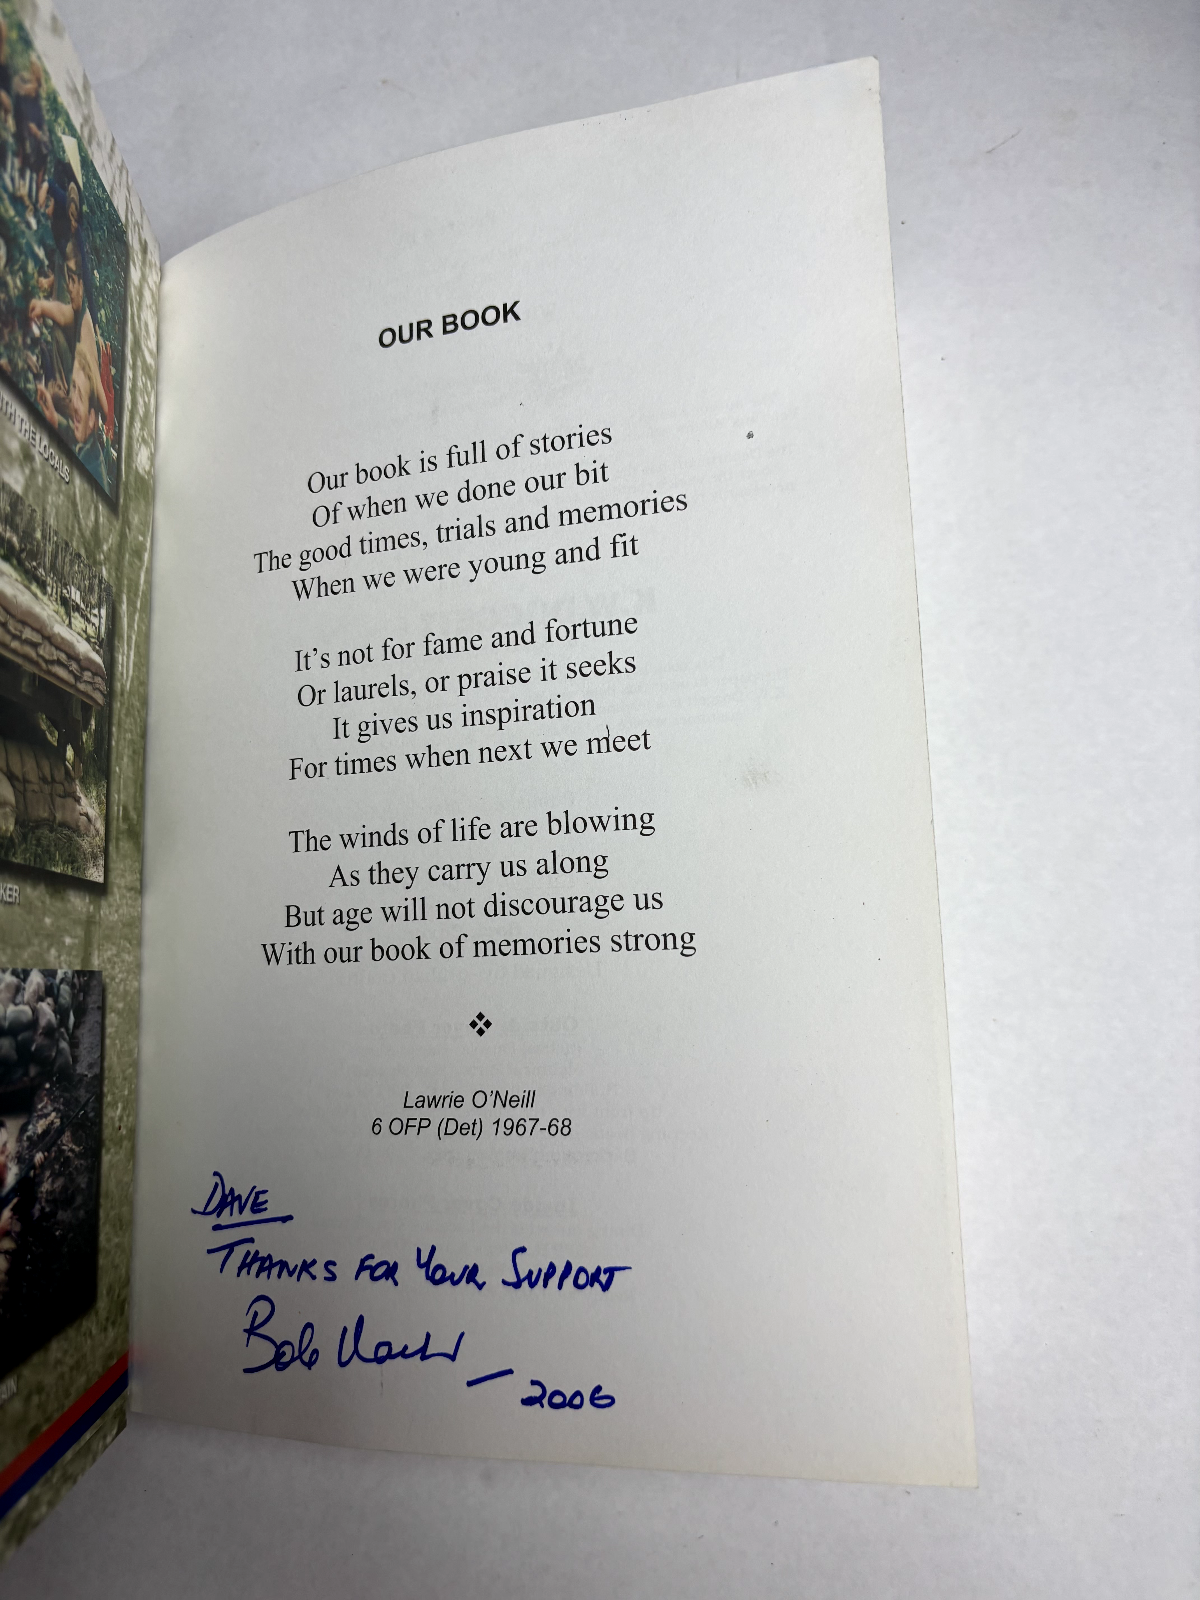 WITH THE LOCALS
OUR BOOK
Our book is full of stories
Of when we done our bit
The good times, trials and memories
When we were young and fit
It's not for fame and fortune
Or laurels, or praise it seeks
It gives us inspiration
For times when next we meet
The winds of life are blowing
As they carry us along
But age will not discourage us
With our book of memories strong
Lawrie O'Neill
6 OFP (Det) 1967-68
DAVE
THANKS FOR YOUR SUPPORT
Bob
2006